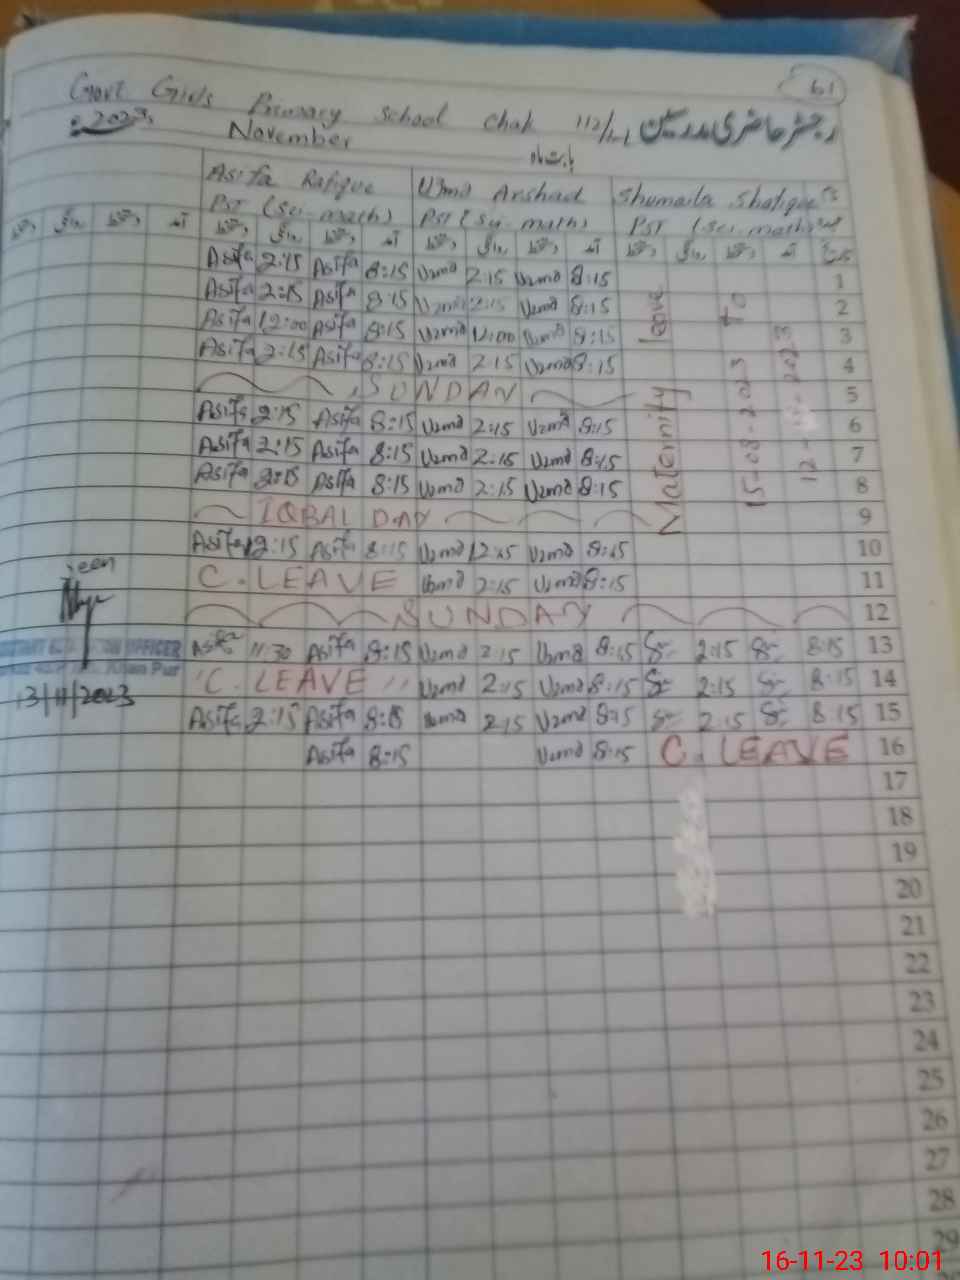 61
Govt Girls Primary School Chak 112/ رجسٹر حاضری مدرسین
2023 November بابت ماہ
Asifa Rafique Uzma Arshad Shumaila Shafique
PST (sci-math) PST (sci-math) PST (sci-math)
Asifa 2:15 Asifa 8:15 Uzma 2:15 Uzma 8:15 1
Asifa 2:15 Asifa 8:15 Uzma 2:15 Uzma 8:15 2
Asifa 12:00 Asifa 8:15 Uzma 12:00 Uzma 8:15 3
Asifa 2:15 Asifa 8:15 Uzma 2:15 Uzma 8:15 4
SUNDAY 5
Asifa 2:15 Asifa 8:15 Uzma 2:15 Uzma 8:15 6
Asifa 2:15 Asifa 8:15 Uzma 2:15 Uzma 8:15 7
Asifa 2:15 Asifa 8:15 Uzma 2:15 Uzma 8:15 8
Maternity leave
15-08-2023 To
12- -2023
IQBAL DAY 9
Asifa 12:15 Asifa 8:15 Uzma 12:15 Uzma 8:15 10
C. LEAVE Uzma 2:15 Uzma 8:15 11
SUNDAY 12
Seen
OFFICER
Khan Pur
13/11/2023
Asifa 11:30 Asifa 8:15 Uzma 2:15 Uzma 8:15 2:15 8:15 13
C. LEAVE Uzma 2:15 Uzma 8:15 2:15 8:15 14
Asifa 2:15 Asifa 8:15 Uzma 2:15 Uzma 8:15 2:15 8:15 15
Asifa 8:15 Uzma 8:15 C. LEAVE 16
17
18
19
20
21
22
23
24
25
26
27
28
29
16-11-23 10:01